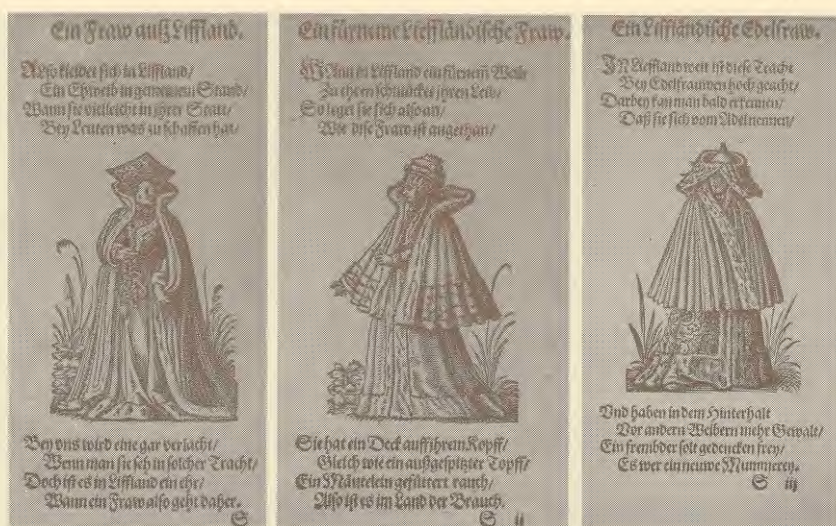 Ein Fraw auß Liffland.
Also kleidet sich in Liffland/
Ein Ehweib in gemeinem Stand/
Wann sie villeicht in ihrer Statt/
Bey Leuten was zu schaffen hat/
Bey vns wird eine gar verlacht/
Wenn man sie seh in solcher Tracht/
Doch ist es in Liffland ein ehr/
Wann ein Fraw also geht daher.
S
Ein fürneme Lieffländische Fraw.
Wann in Liffland ein fürnem Weib
Zu ehrn schmücket ihren Leib/
So leget sie sich also an/
Wie dise Fraw ist angethan/
Sie hat ein Deck auff ihrem Kopff/
Gleich wie ein außgespitzter Topff/
Ein Mäntelein gefüttert rauch/
Also ist es im Land der Brauch.
S ij
Ein Liffländische Edelfraw.
In Liefflandt weit ist diese Tracht
Bey Edelfrauwen hoch geacht/
Darbey kan man bald erkennen/
Daß sie sich vom Adel nennen/
Vnd haben in dem Hinterhalt
Vor andern Weibern mehr Gewalt/
Ein frembder solt gedencken frey/
Es wer ein neuwe Mummerey.
S iij